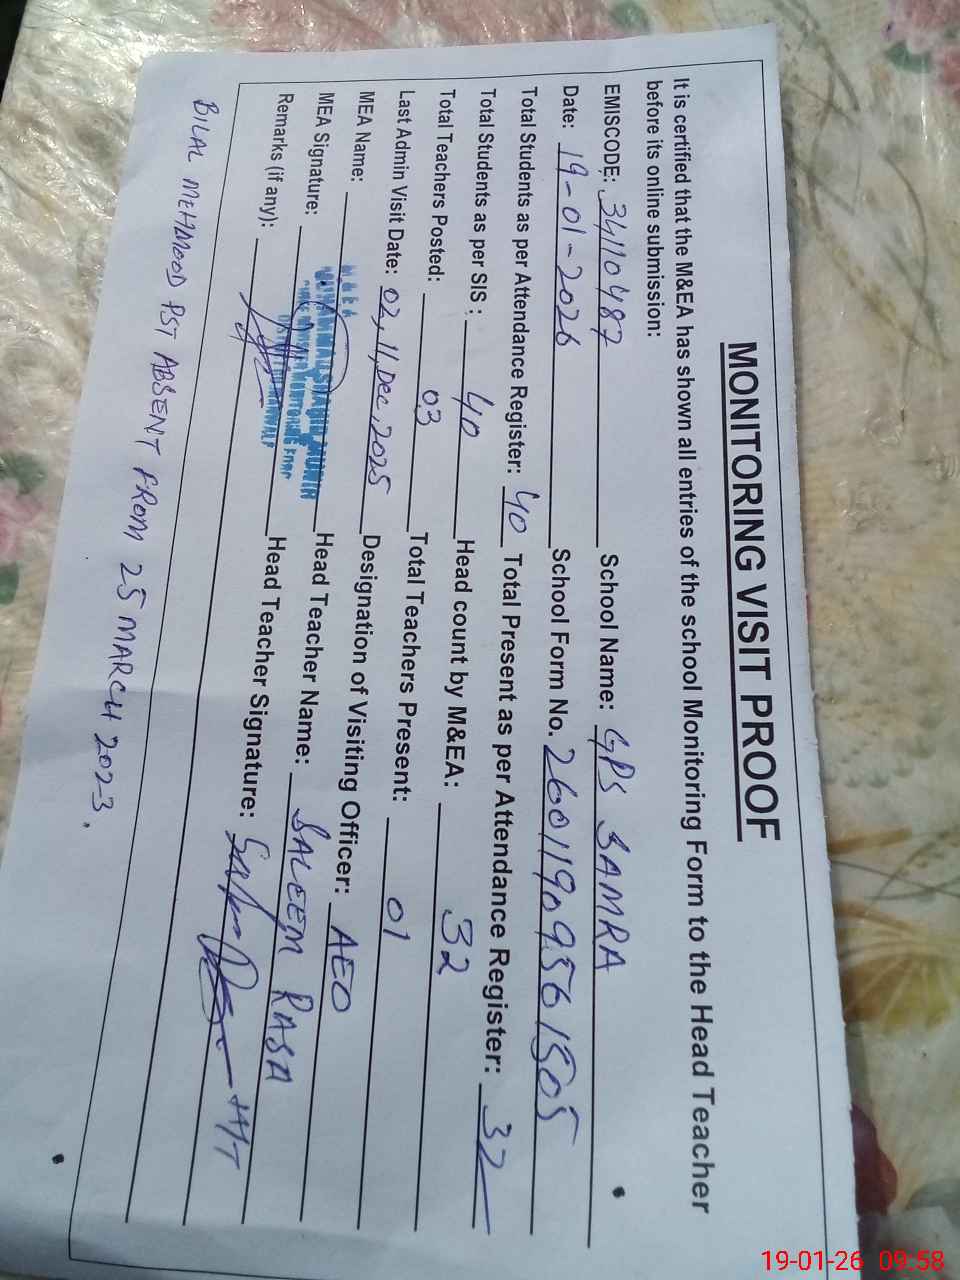 MONITORING VISIT PROOF
It is certified that the M&EA has shown all entries of the school Monitoring Form to the Head Teacher
before its online submission:
EMISCODE: 34110487 School Name: GPS SAMRA
Date: 19-01-2026 School Form No. 26011909561505
Total Students as per Attendance Register: 40 Total Present as per Attendance Register: 32
Total Students as per SIS: 40 Head count by M&EA: 32
Total Teachers Posted: 03 Total Teachers Present: 01
Last Admin Visit Date: 02, 11, Dec, 2025 Designation of Visiting Officer: AEO
MEA Name: Head Teacher Name: SALEEM RASA
MEA Signature: Head Teacher Signature: HT
Remarks (if any):
BILAL MEHMOOD PST ABSENT FROM 25 MARCH 2023.
19-01-26 09:58